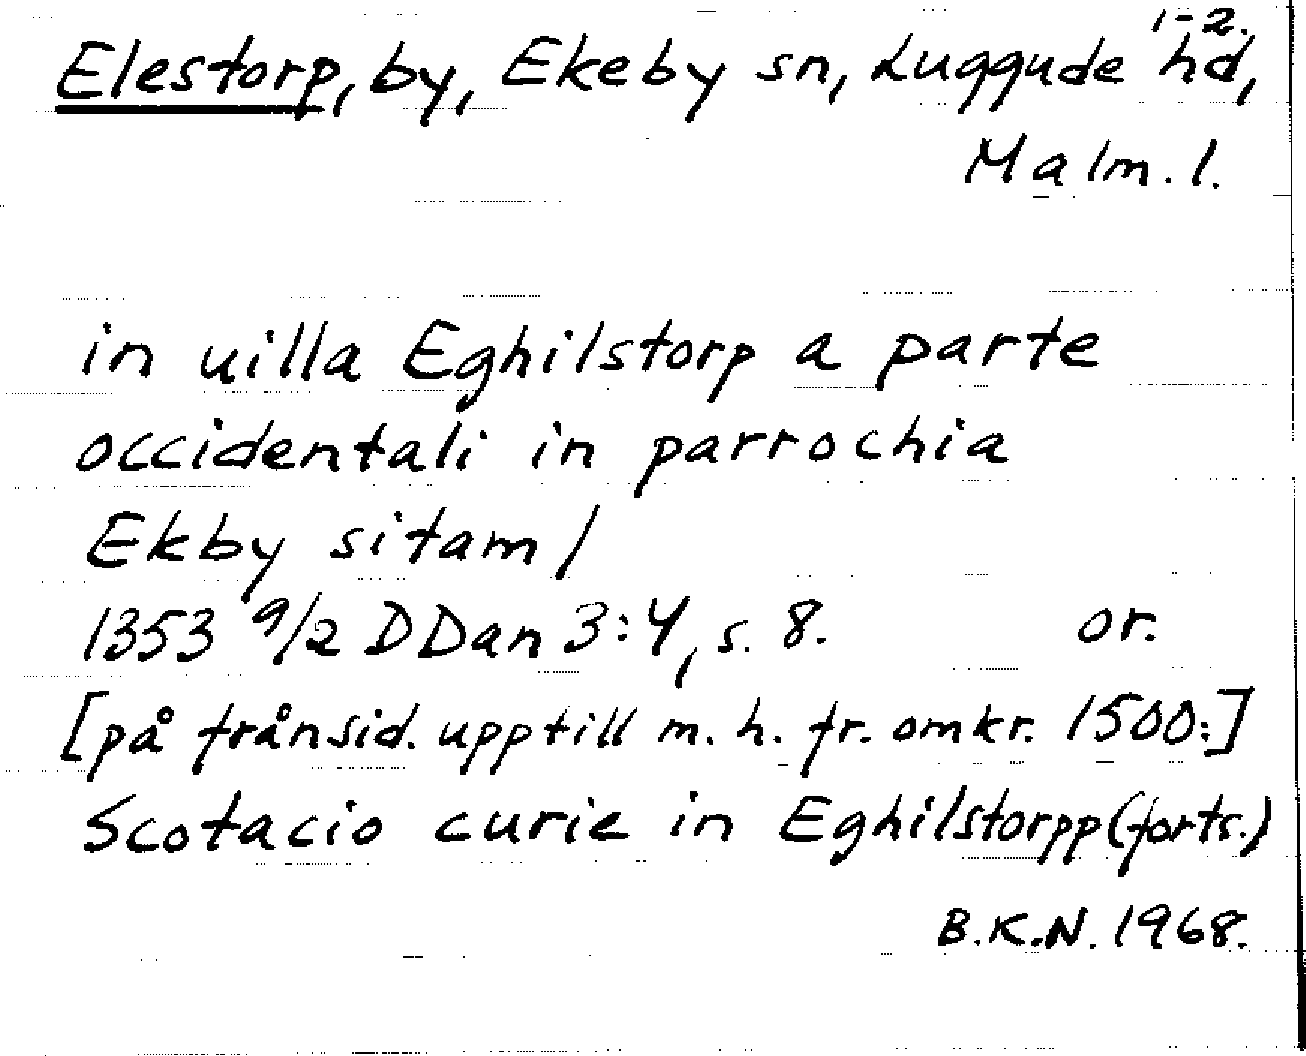 1-2.
Elestorp, by, Ekeby sn, Luggude hd,
Malm. l.
in uilla Eghilstorp a parte
occidentali in parrochia
Ekby sitam /
1353 9/2 DDan 3:4, s. 8. or.
[på frånsid. upptill m. h. fr. omkr. 1500:]
Scotacio curie in Eghilstorpp (forts.)
B.K.N. 1968.